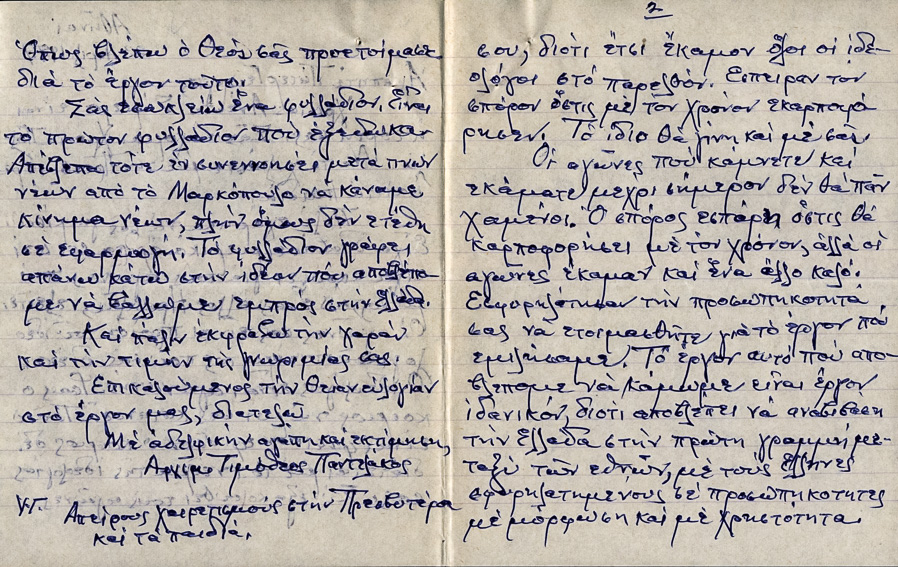 Ὅπως βλέπω ὁ Θεὸς σᾶς προετοίμασε
διὰ τὸ ἔργον τοῦτο.
Σας ἐσωκλείω ἕνα φυλλάδιον. Εἶναι
τὸ πρῶτον φυλλάδιον ποὺ ἐξέδωκαν
Ἀπέβλεπα τότε ἐν συνεννοήσει μετά τινων
νέων ἀπὸ τὸ Μαρκόπουλο νὰ κάναμε
κίνημα νέων, πλὴν ὅμως δὲν ετέθη
σὲ εφαρμογή. Τὸ φυλλάδιον γράφει
απάνω κάτω στὴν ιδέαν ποὺ αποβλέπο-
με νὰ βάλλωμεν εμπρὸς στὴν Ἑλλάδα.
Καὶ πάλιν εκφράζω τὴν χαρὰν
καὶ τὴν τιμὴν τῆς γνωριμίας σας.
Επικαλούμενος τὴν Θείαν ευλογίαν
στὸ ἔργον μας, διατελῶ
Μὲ ἀδελφικὴν αγάπη καὶ εκτίμηση,
Αρχιμ. Τιμόθεος Παντελάκος
Υ.Γ. Απείρους χαιρετισμοὺς στὴν Πρεσβυτέρα
καὶ τὰ παιδιά.
2
σου, διότι ἔτσι ἔκαμον ὅλοι οἱ ιδε-
ολόγοι στὸ παρελθόν. Εσπειραν τὸν
σπόρον ὅστις μὲ τὸν χρόνον εκαρποφό
ρησεν. Τὸ ίδιο θὰ γίνη καὶ μὲ σᾶς.
Οἱ αγῶνες ποὺ κάμνετε καὶ
εκάματε μέχρι σήμερον δὲν θὰ πᾶν
χαμένοι. Ὁ σπόρος εσπάρη ὅστις θὰ
καρποφορήσει μὲ τὸν χρόνον, ἀλλὰ οἱ
αγῶνες ἔκαμαν καὶ ἕνα ἄλλο καλό.
Εσφυρηλάτησαν τὴν προσωπικότητά
σας νὰ ετοιμασθῆτε γιὰ τὸ ἔργον ποὺ
εμιλήσαμε. Τὸ ἔργον αυτὸ ποὺ απο-
βλέπομε νὰ κάμωμε εἶναι ἔργον
ιδανικόν, διότι αποβλέπει νὰ αναβιβάση
τὴν Ἑλλάδα στὴν πρώτη γραμμὴ με-
ταξὺ τῶν εθνῶν, μὲ τοὺς Ἕλληνες
σφυρηλατημένους σὲ προσωπικότητες
μὲ μόρφωση καὶ μὲ χρηστότητα.